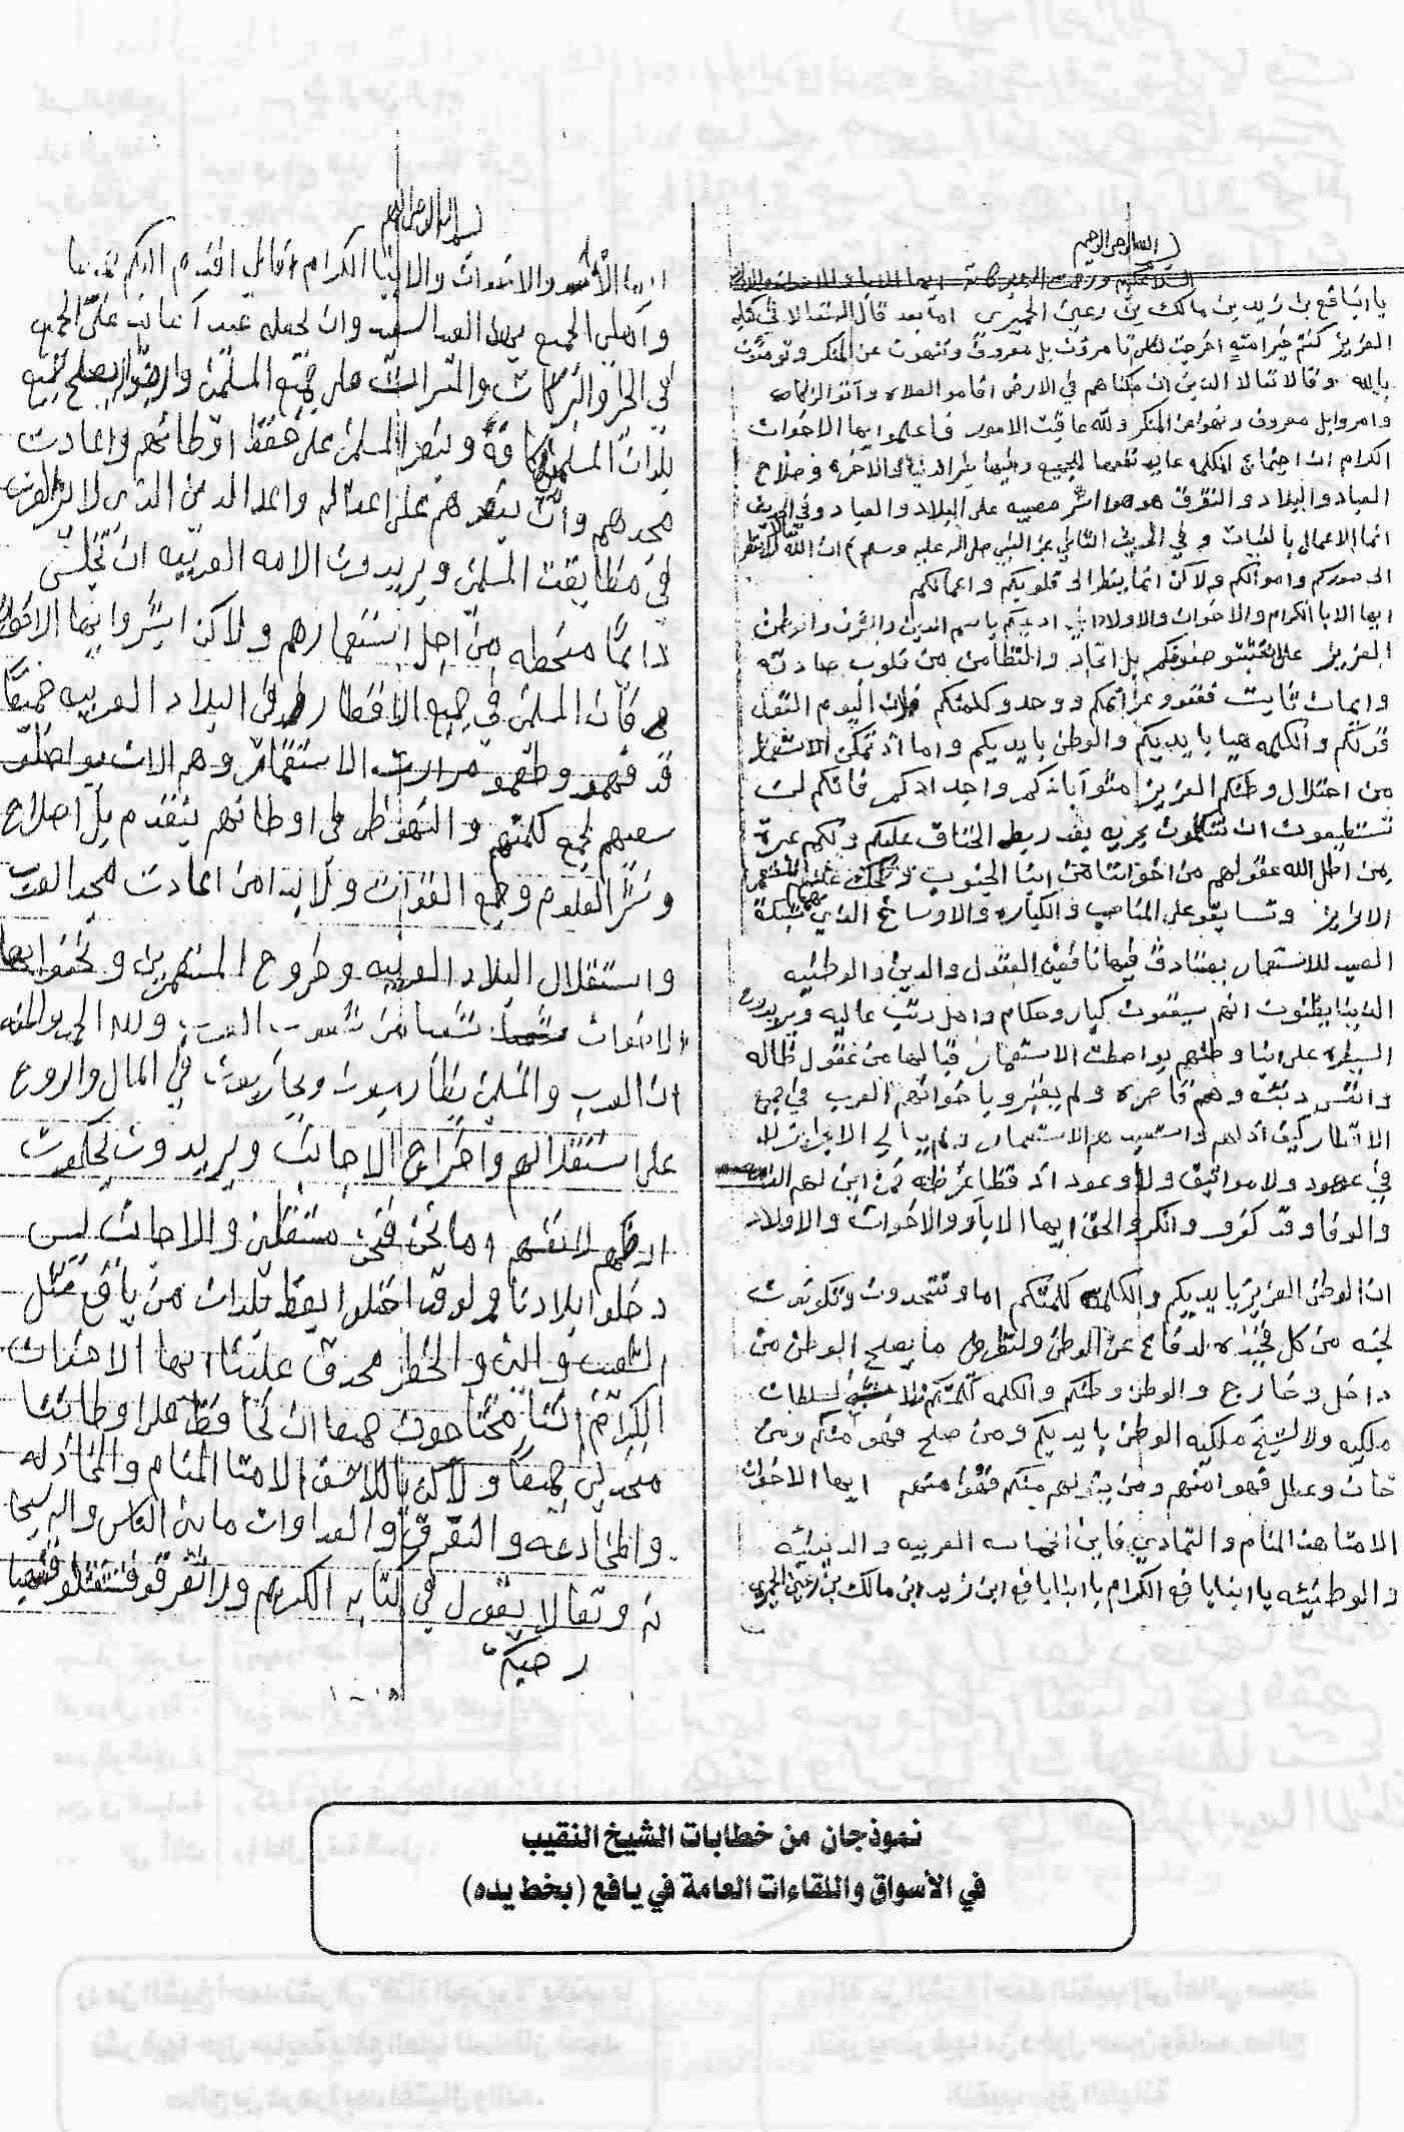 بسم الله الرحمن الرحيم
السلام عليكم ورحمت الله وبركاته ايها الاباء والاخوان والاولاد
يا ابنا يافع بن زيد بن مالك بن رعين الحميري اما بعد قال الله تعالا في كتابه
العزيز كنتم خير امته اخرجت للناس تامرون بل معروف وتنهون عن المنكر وتومنون
بالله وقالا تعالا الذين ان مكناهم في الارض اقامو الصلاه وآتو الزكاه
وامرو ابل معروف ونهوا عن المنكر ولله عاقبت الامور فاعلموا ايها الاخوان
الكرام ان اجتماع الكلمه عايد نفعها للجميع وفيها خير الدنيا والاخره وصلاح
العباد والبلاد والتفرق هو هو اشر مصيبه على البلاد والعباد وفي الحديث
انما الاعمال بالنيات وفي الحديث الثاني عن النبي صلى الله عليه وسلم ان الله تعالا لا ينظر
الى صوركم واموالكم ولاكن انما ينظر الى قلوبكم واعمالكم
ايها الابا الكرام والاخوان والاولاد اني اديكم باسم الدين والشرف والوطن
العزيز على تثبتو صفوفكم بل اتحاد والتظامن من قلوب صادقه
وايمان ثابت فقوو عزائمكم ووحدو كلمتكم فان اليوم القول
قولكم والكلمه هيا بايديكم والوطن بايديكم واما اذ تمكن الاستعمار
من احتلال وطنكم العزيز مثوا آبائكم واجدادكم فانكم لن
تستطيعون ان تتكلمون بحريه بعد ربط الخناق عليكم ولكم عبرة
من اظل الله عقولهم من اخواننا من ابنا الجنوب
وتسابقو على المناصب والكباره والاوساخ الذي
العيب للاستعمار فيها ناقصين العقول والدين والوطنيه
الذين يظنون انهم سيقون كبار وحكام واهل رتب عاليه ويريدون
السيطره على ابنا وطنهم بواصطت الاستعمار فيا لها من عقول ظاله
وانفس دنيئه وهم قاصره ولم يعتبرو باخوانهم العرب في جميع
الاقطار كيف اذلهم واستعبدهم الاستعمار
في عهود ولا مواثيق ولا وعود اذ قظا غرظه فمن اين لهم
والوفا وقد كفرو وانكرو الحق ايها الاباء والاخوان والاولاد
ان الوطن العزيز بايديكم والكلمه كلمتكم اما وتتحدون وتكونون
لجنه من كل فخيذه لدفاع عن الوطن ولنظر ما يصلح الوطن من
داخل وخارج والوطن وطنكم والكلمه كلمتكم للسلطان
ملكيه ولا لشيخ ملكيه الوطن بايديكم ومن صلح فهو منكم ومن
خان وعطل فهو منهم ومن يتولهم منكم فهو منهم ايها الاخوان
الامتا هذ المنام والتمادي فاين الحماسه العربيه والدينيه
والوطنيه يا ابنا يافع الكرام يا ابنا يافع ابن زيد ابن مالك بن رعين الحميري
بسم الله الرحمن الرحيم
والاخوان والابنا الكرام
واهلي الجميع بهذا العيد السعيد وان يجعله عيد آ عائد على الجميع
في الخير والبركات والمسرات على جميع المسلمين وان يصلح جميع
بلدان المسلمين كافة وينصر المسلمين على حفظ اوطانهم واعادت
مجدهم وان ينصرهم على اعدائهم واعداء الدين الذي لا
في مظايقت المسلمين ويريدون الامه العربيه ان تجلس
دائما منحطه من اجل استعمارهم ولاكن ابشروا ايها الاخوان
فان المسلمين في جميع الاقطار وفي البلاد العربيه جميعا
قد فهمو وطعمو مرارت الاستعمار وهم الان يواصلو
سعيهم لجمع كلمتهم والنهوظ في اوطانهم بتقدم بل اصلاح
ونشر العلوم وجمع القوات ولا بد من اعادت مجد العرب
واستقلال البلاد العربيه وخروج المستعمرين ونحن ايها
الاخوان شعبا من شعوب العرب ولله الحمد
ان العرب والمسلمين يظاربون ويحاربون في المال والروح
على استقلالهم واخراج الاجانب ويريدون يحكمون
ارظهم لانفسهم اما نحن فنحن مستقلين والاجانب ليس
دخلوا بلادنا ولو قد احتلوا بعظ بلدان من يافع مثل
الشعيب والخطر محدق علينا ايها الاخوان
الكرام اننا محتاجون جميعا ان نحافظ على اوطاننا
متحدين جميعا ولاكن ياللاسف الامتا المنام والمخاذله
والمخادعه والتفرق والعداوات مابين الناس والله سبحا
نه وتعالا يقول في كتابه الكريم ولا تفرقو فتفشلو وتذهب
ريحكم
نموذجان من خطابات الشيخ النقيب
في الأسواق واللقاءات العامة في يافع (بخط يده)